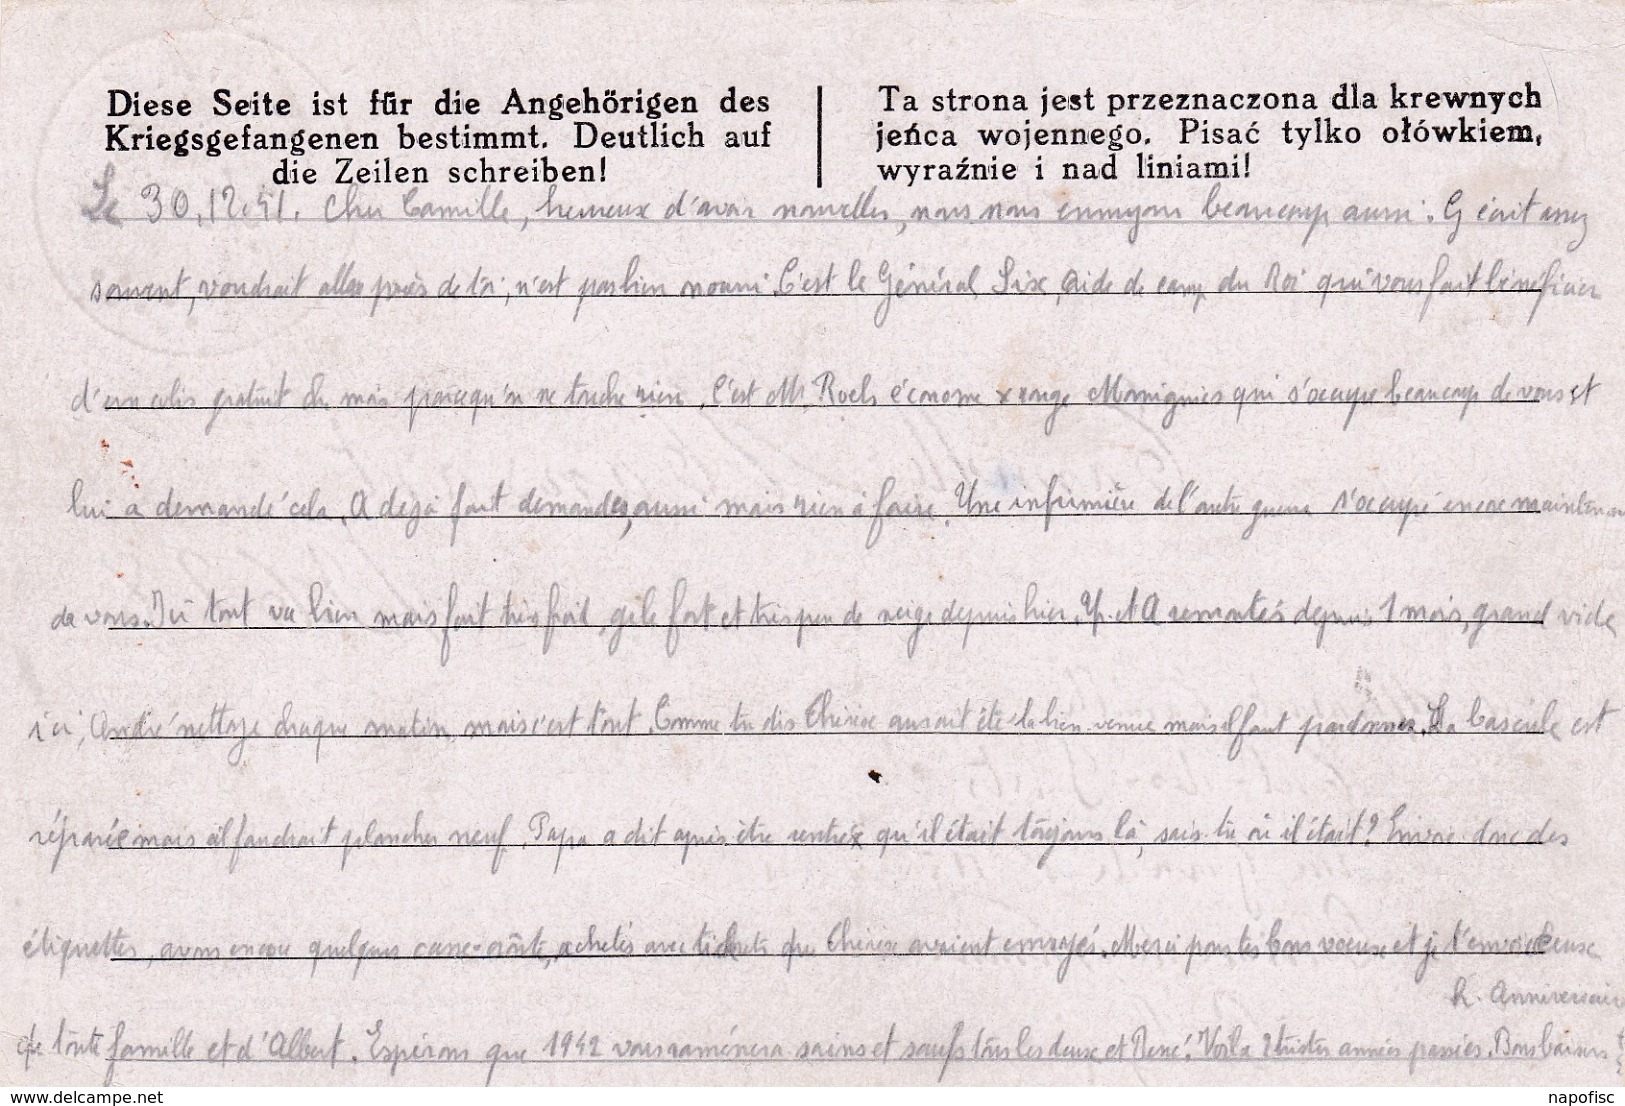 Diese Seite ist für die Angehörigen des
Kriegsgefangenen bestimmt. Deutlich auf
die Zeilen schreiben!
Ta strona jest przeznaczona dla krewnych
jeńca wojennego. Pisać tylko ołówkiem,
wyraźnie i nad liniami!
Le 30.12.41. Cher Camille, heureux d'avoir nouvelles, nous nous ennuyons beaucoup aussi. G écrit assez
souvent, voudrait aller près de toi, n'est pas bien nourri. C'est le Général Six, aide de camp du Roi qui vous fait bénéficier
d'un colis gratuit de mais parcequ'on ne touche rien. C'est Mr. Roels économe x rouge Morignies qui s'occupe beaucoup de vous et
lui a demandé cela. A déjà fait demandes aussi mais rien à faire. Une infirmière de l'autre guerre s'occupe encore maintenant
de vous. Ici tout va bien mais fait très froid, gèle fort et très peu de neige depuis hier. Y. et A remontés depuis 1 mois, grand vide
ici, André nettoye chaque matin, mais c'est tout. Comme tu dis Thérèse aurait été la bien venue mais il faut pardonner. La bascule est
réparée mais il faudrait plancher neuf. Papa a dit après être rentré qu'il était toujours là, sais-tu où il était? Envoie donc des
étiquettes, avons encore quelques casse-croûte, achetés avec tickets que Thérèse avaient envoyés. Merci pour tes bons voeux et je t'envoie ceux
h. Anniversaire
de toute famille et d'Albert. Espérons que 1942 vous ramènera sains et saufs tous les deux et René. Voilà 2 tristes années passées. Bons baisers
delcampe.net
napofisc